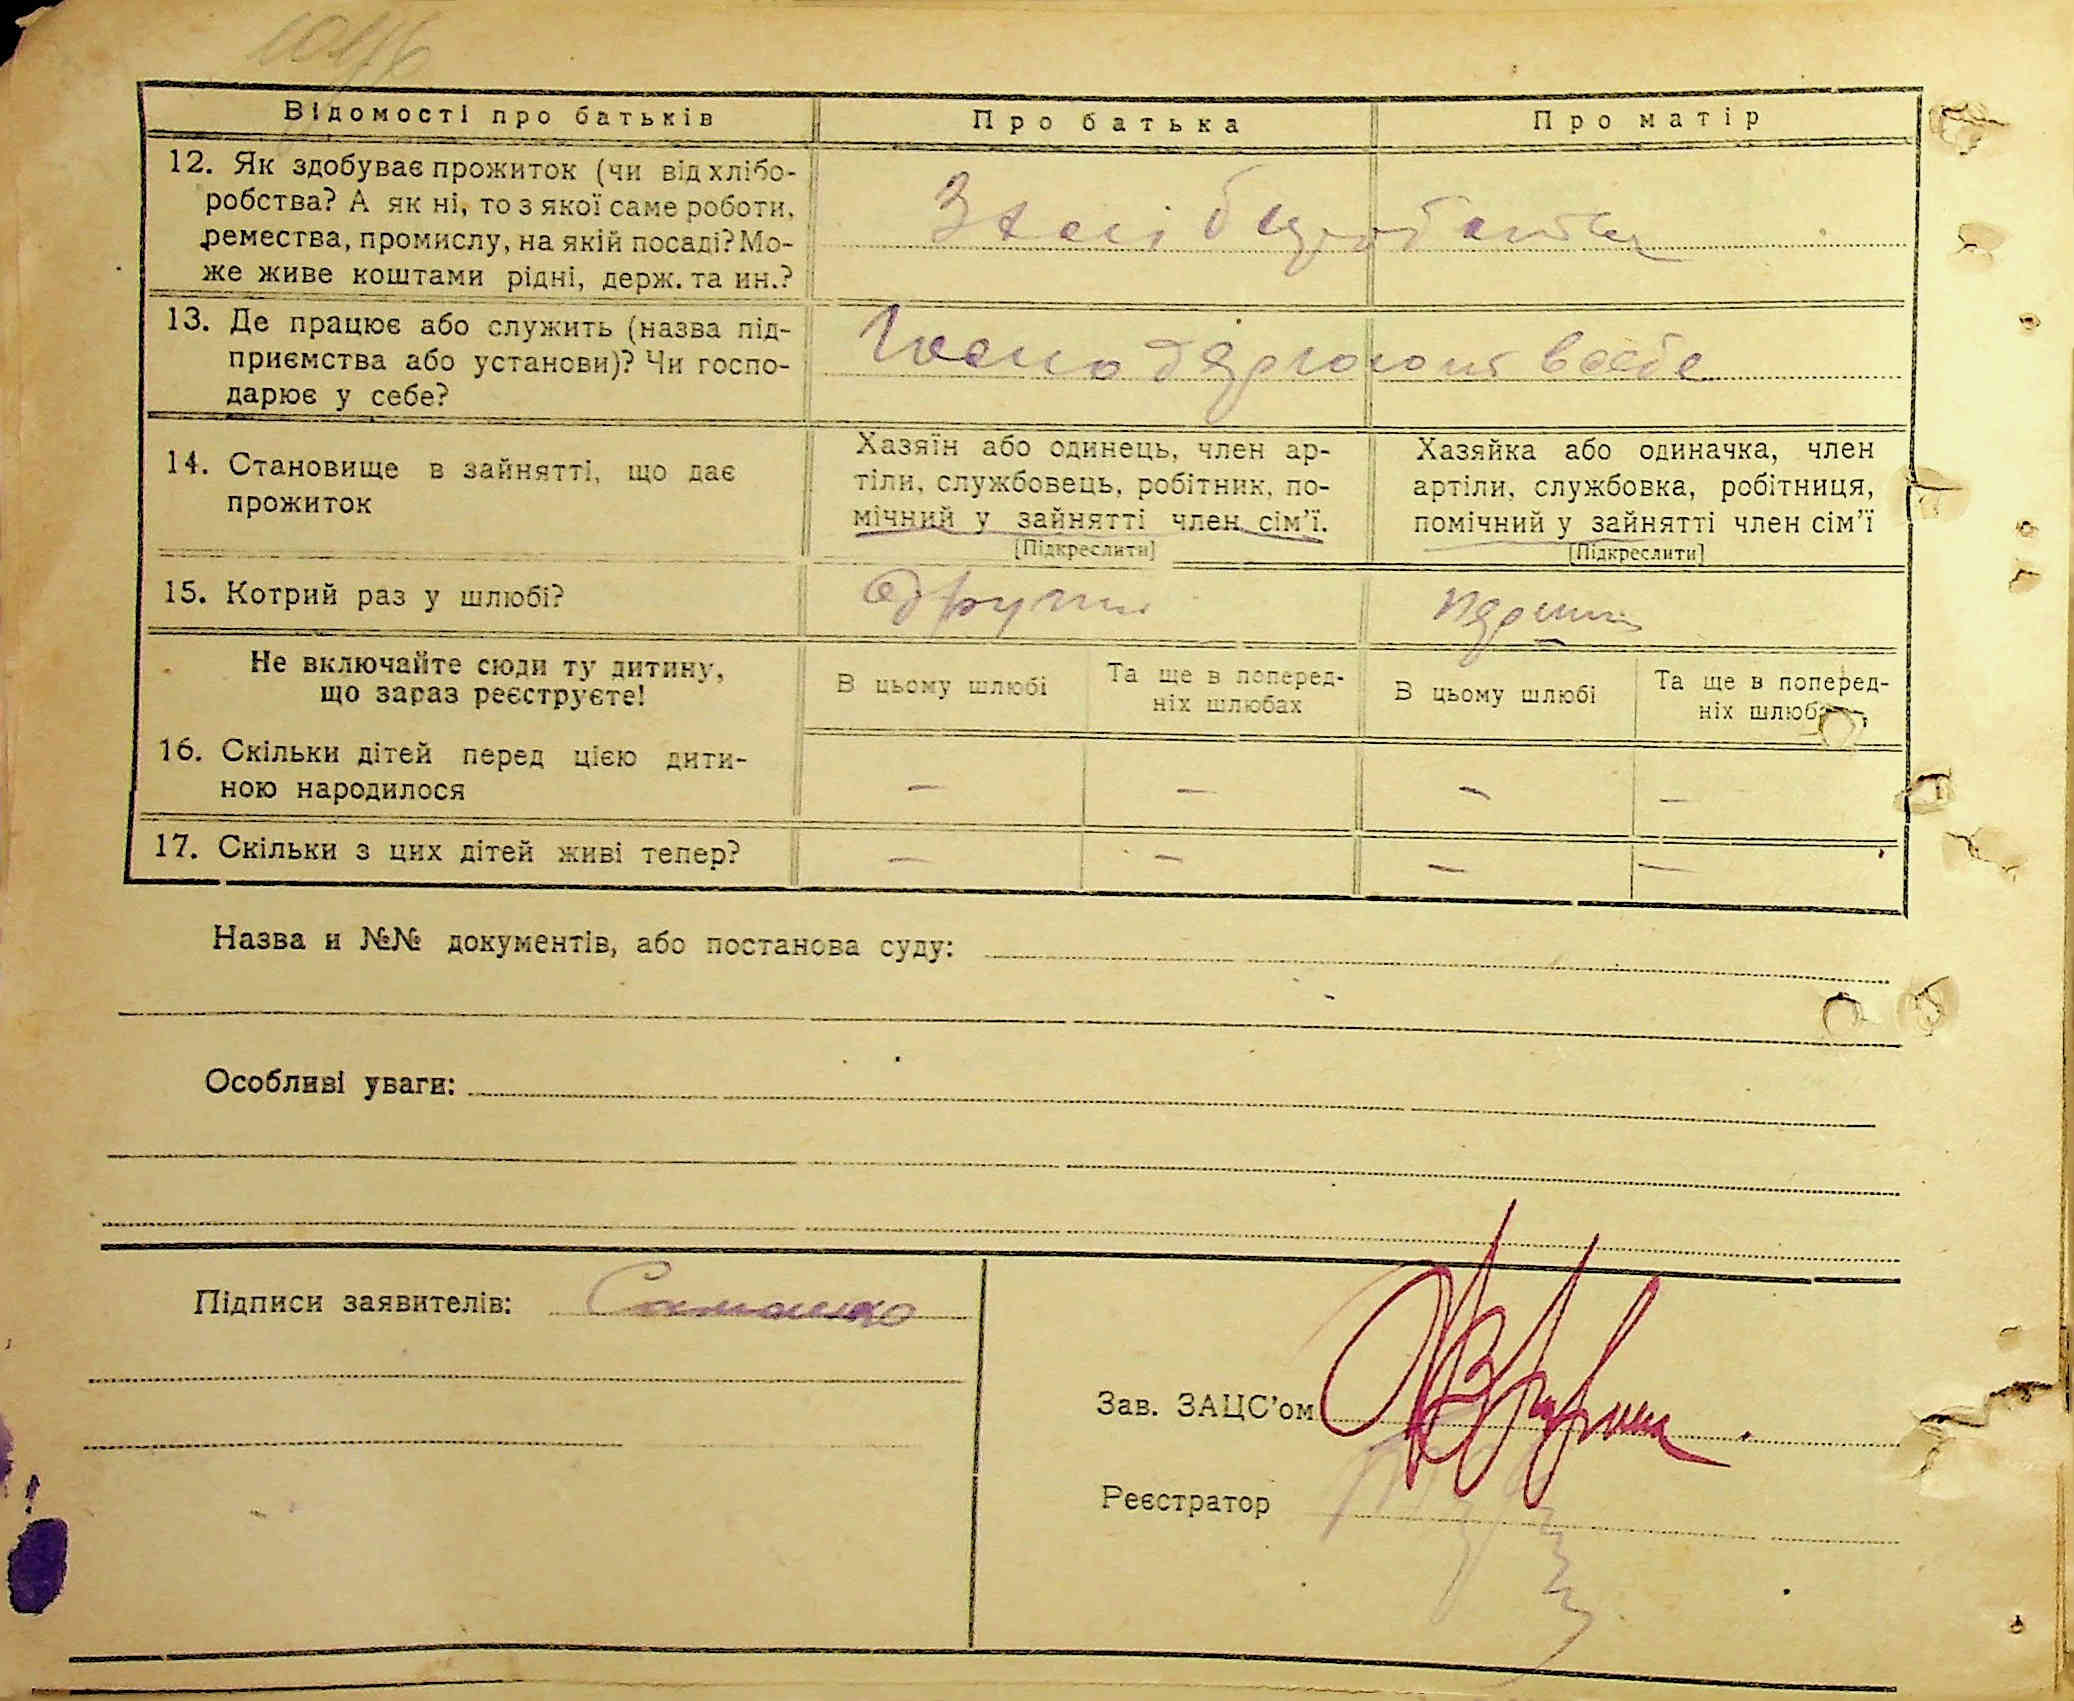 Відомості про батьків
Про батька
Про матір
12. Як здобуває прожиток (чи від хлібо-
робства? А як ні, то з якої саме роботи,
ремества, промислу, на якій посаді? Мо-
же живе коштами рідні, держ. та ин.?
13. Де працює або служить (назва під-
приємства або установи)? Чи госпо-
дарює у себе?
в себе
14. Становище в зайнятті, що дає
прожиток
Хазяїн або одинець, член ар-
тіли, службовець, робітник, по-
мічний у зайнятті член сім'ї.
[Підкреслити]
Хазяйка або одиначка, член
артіли, службовка, робітниця,
помічний у зайнятті член сім'ї
[Підкреслити]
15. Котрий раз у шлюбі?
Не включайте сюди ту дитину,
що зараз реєструєте!
В цьому шлюбі
Та ще в поперед-
ніх шлюбах
В цьому шлюбі
Та ще в поперед-
ніх шлюбах
16. Скільки дітей перед цією дити-
ною народилося
— — — —
17. Скільки з цих дітей живі тепер?
— — — —
Назва и №№ документів, або постанова суду:
Особливі уваги:
Підписи заявителів:
Зав. ЗАЦС'ом
Реєстратор